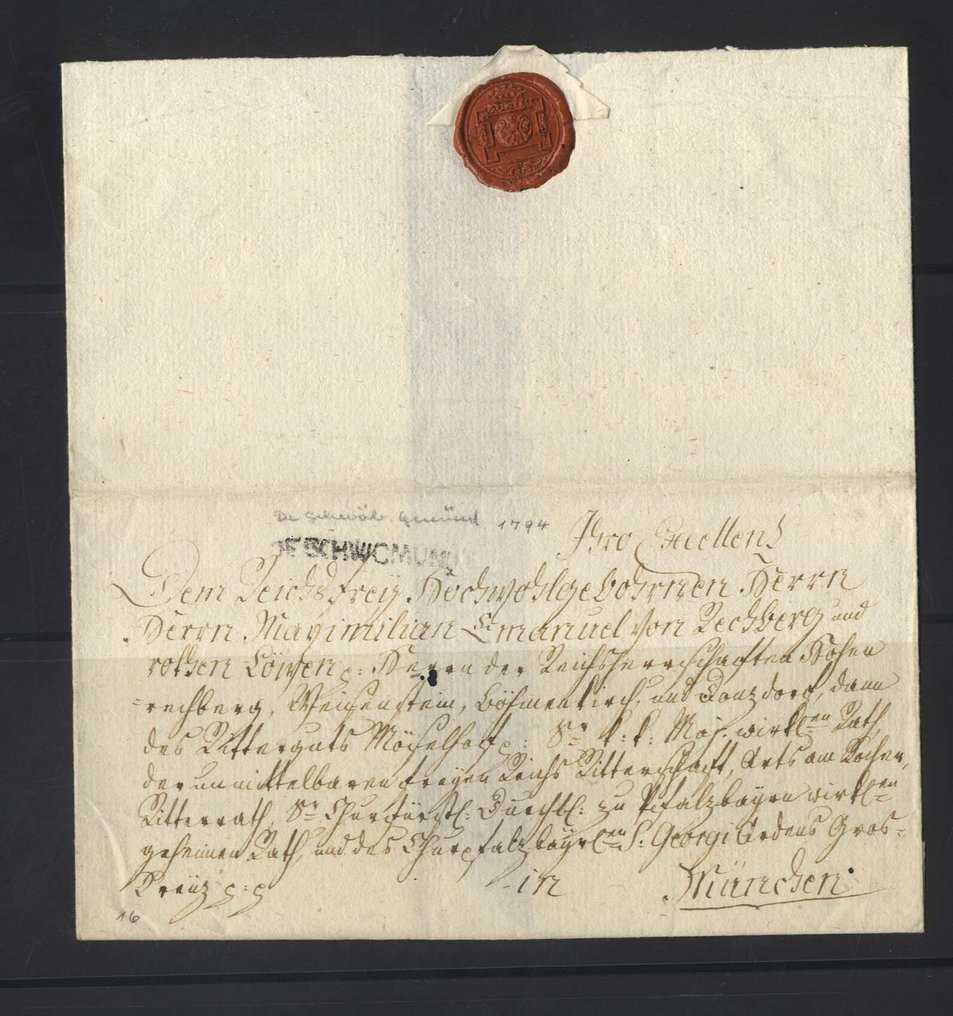 De Schwäb. Gemünd 1794
DE SCHW.GMUND
Ihro Excellenz
Dem Reichs Frey Hochwohlgebohrnen Herrn
Herrn Maximilian Emanuel von Rechberg und
rothen Löwen p: Herrn der Reichsherrschaften Hohen
=rechberg, Weisenstein, Böhmenkirch, und Donzdorf, dann
des Ritterguts p: Sr K: k: Maj. wirklen Rath,
der unmittelbaren freyen Reichs Ritterschaft, Orts am Kocher,
Ritterrath, Sr Churfürstl: Durchl: zu Pfalzbayrn wirklen
geheimen Rath, und des Churpfalzbayrlen S: Georgi Ordens Gros=
Kreuz p: p in München.
16